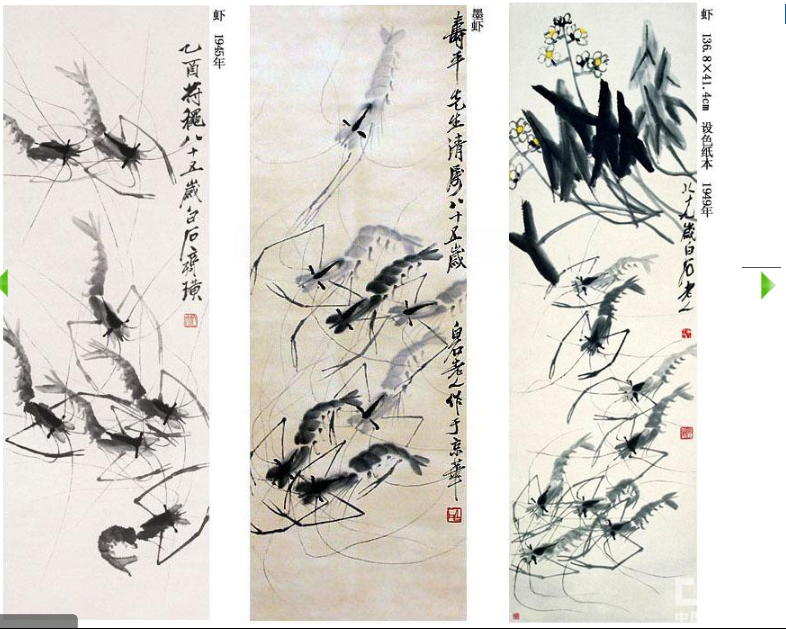 虾 1945年
乙酉
八十五岁白石齐璜
墨虾
寿平先生清属八十五岁
白石老人作于京华
虾 136.8×41.4cm 设色纸本 1949年
八十九岁白石老人